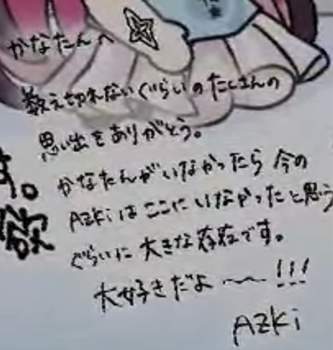 かなたんへ
数え切れないぐらいのたくさんの
思い出をありがとう。
かなたんがいなかったら今の
AZKiはここにいなかったと思う
ぐらいに大きな存在です。
大好きだよ〜!!!
AZKi
す。
欲